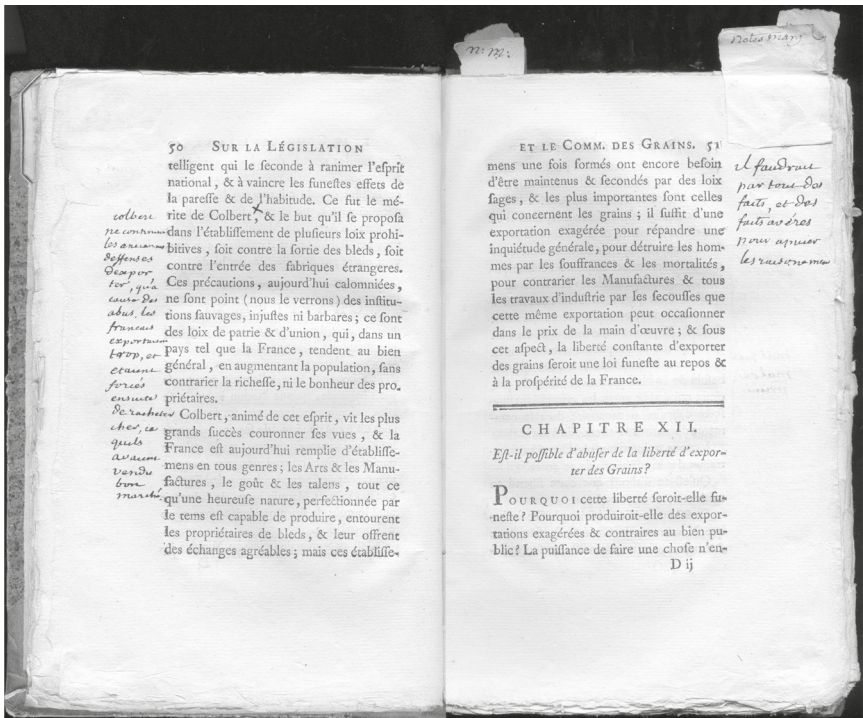 n: m:
notes marg
50 SUR LA LÉGISLATION
telligent qui le seconde à ranimer l'eſprit
national, & à vaincre les funeſtes effets de
la pareſſe & de l'habitude. Ce fut le mé-
rite de Colbert, & le but qu'il ſe propoſa
dans l'établiſſement de pluſieurs loix prohi-
bitives, ſoit contre la ſortie des bleds, ſoit
contre l'entrée des fabriques étrangeres.
Ces précautions, aujourd'hui calomniées,
ne ſont point (nous le verrons) des inſtitu-
tions ſauvages, injuſtes ni barbares; ce ſont
des loix de patrie & d'union, qui, dans un
pays tel que la France, tendent au bien
général, en augmentant la population, ſans
contrarier la richeſſe, ni le bonheur des pro-
priétaires.
Colbert, animé de cet eſprit, vit les plus
grands ſuccès couronner ſes vues, & la
France eſt aujourd'hui remplie d'établiſſe-
mens en tous genres; les Arts & les Manu-
factures, le goût & les talens, tout ce
qu'une heureuſe nature, perfectionnée par
le tems eſt capable de produire, entourent
les propriétaires de bleds, & leur offrent
des échanges agréables; mais ces établiſſe-
colbert
ne
les
deffenses
dexpor
ter, qu'à
cause des
abus. les
francais
exportaient
trop, et
etaient
forcés
ensuite
de racheter
cher, ce
quils
avaient
vendu
bon
marché
ET LE COMM. DES GRAINS. 51
mens une fois formés ont encore beſoin
d'être maintenus & ſecondés par des loix
ſages, & les plus importantes ſont celles
qui concernent les grains; il ſuffit d'une
exportation exagérée pour répandre une
inquiétude générale, pour détruire les hom-
mes par les ſouffrances & les mortalités,
pour contrarier les Manufactures & tous
les travaux d'induſtrie par les ſecouſſes que
cette même exportation peut occaſionner
dans le prix de la main d'œuvre; & ſous
cet aſpect, la liberté conſtante d'exporter
des grains ſeroit une loi funeſte au repos &
à la proſpérité de la France.
il faudrait
partout des
faits, et des
faits avérés
pour apuier
les raisonemens
CHAPITRE XII.
Eſt-il poſſible d'abuſer de la liberté d'expor-
ter des Grains?
POURQUOI cette liberté ſeroit-elle fu-
neſte? Pourquoi produiroit-elle des expor-
tations exagérées & contraires au bien pu-
blic? La puiſſance de faire une choſe n'en-
D ij